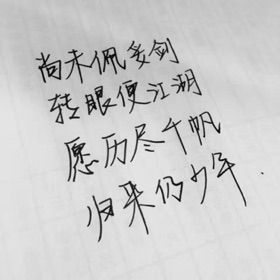 尚未佩妥剑
转眼便江湖
愿历尽千帆
归来仍少年.